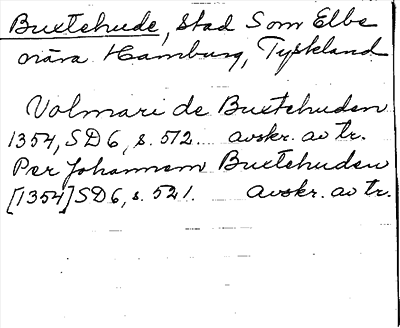 Buxtehude, stad Som Elbe
nära Hamburg, Tyskland
Volmari de Buxtehuden
1354, SD 6, s. 512. avskr. av tr.
Per Johannem Buxtehuden
[1354] SD 6, s. 521. Avskr. av tr.